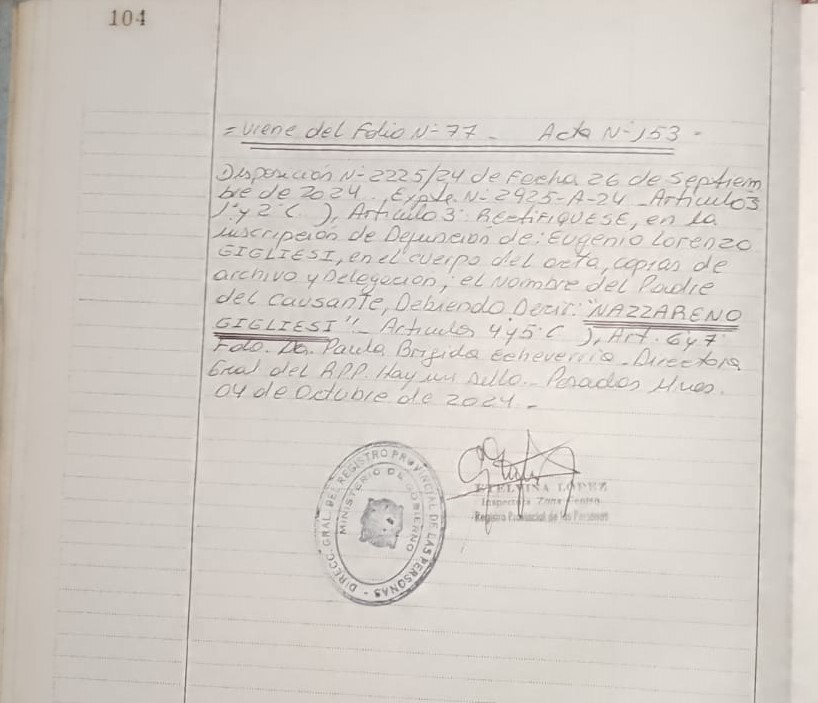 104
= Viene del Folio N° 77 - Acta N° 153 -
Disposición N° 2225/24 de Fecha 26 de Septiem
bre de 2024. Expte. N° 2925-A-24 - Articulos
1° y 2° C ), Artículo 3°: RECTIFIQUESE, en la
inscripción de Defunción de: Eugenio Lorenzo
GIGLIESI, en el cuerpo del acta, copias de
archivo y Delegación, el Nombre del Padre
del causante, Debiendo Decir: "NAZZARENO
GIGLIESI" - Articulos 4 y 5° C ), Art. 6 y 7
Fdo. Da. Paula Brigida Echeverria - Directora
Gral del RPP. Hay un sello - Posadas Mnes.
04 de Octubre de 2024 -
DIRECC. GRAL. DEL REGISTRO PROVINCIAL DE LAS PERSONAS
MINISTERIO DE GOBIERNO
ETELVINA LOPEZ
Inspectora Zona Centro
Registro Provincial de las Personas